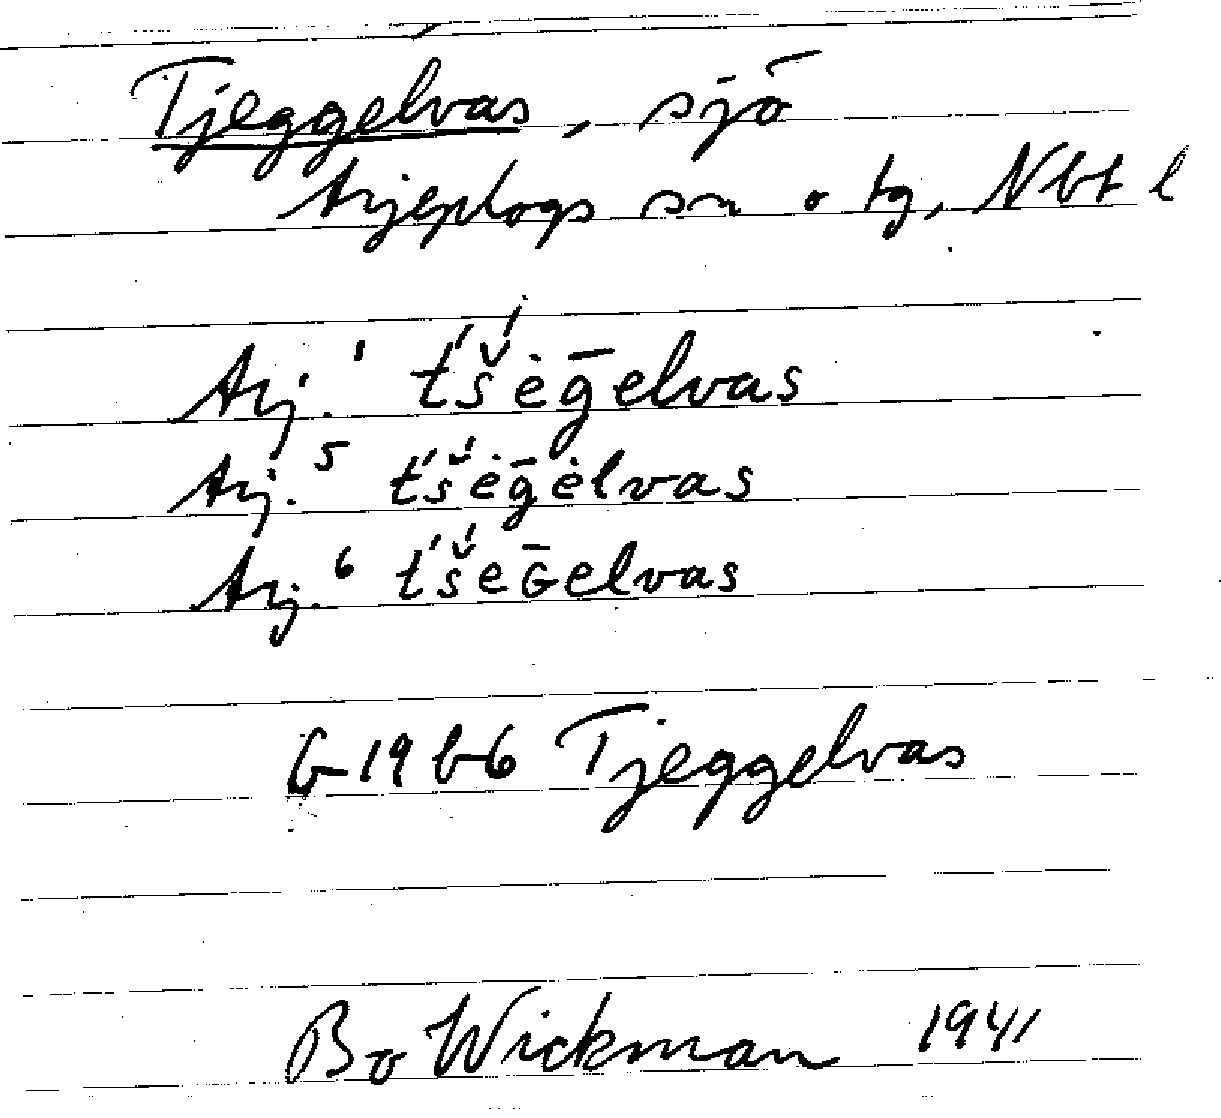 Tjeggelvas, sjö
Arjeplogs sn o tg, Nbt l
Arj.¹ t́š́ėḡelvas
Arj.⁵ t́š́ėḡėlvas
Arj.⁶ t́š́eɢ̄elvas
G 19 b6 Tjeggelvas
Bo Wickman 1941